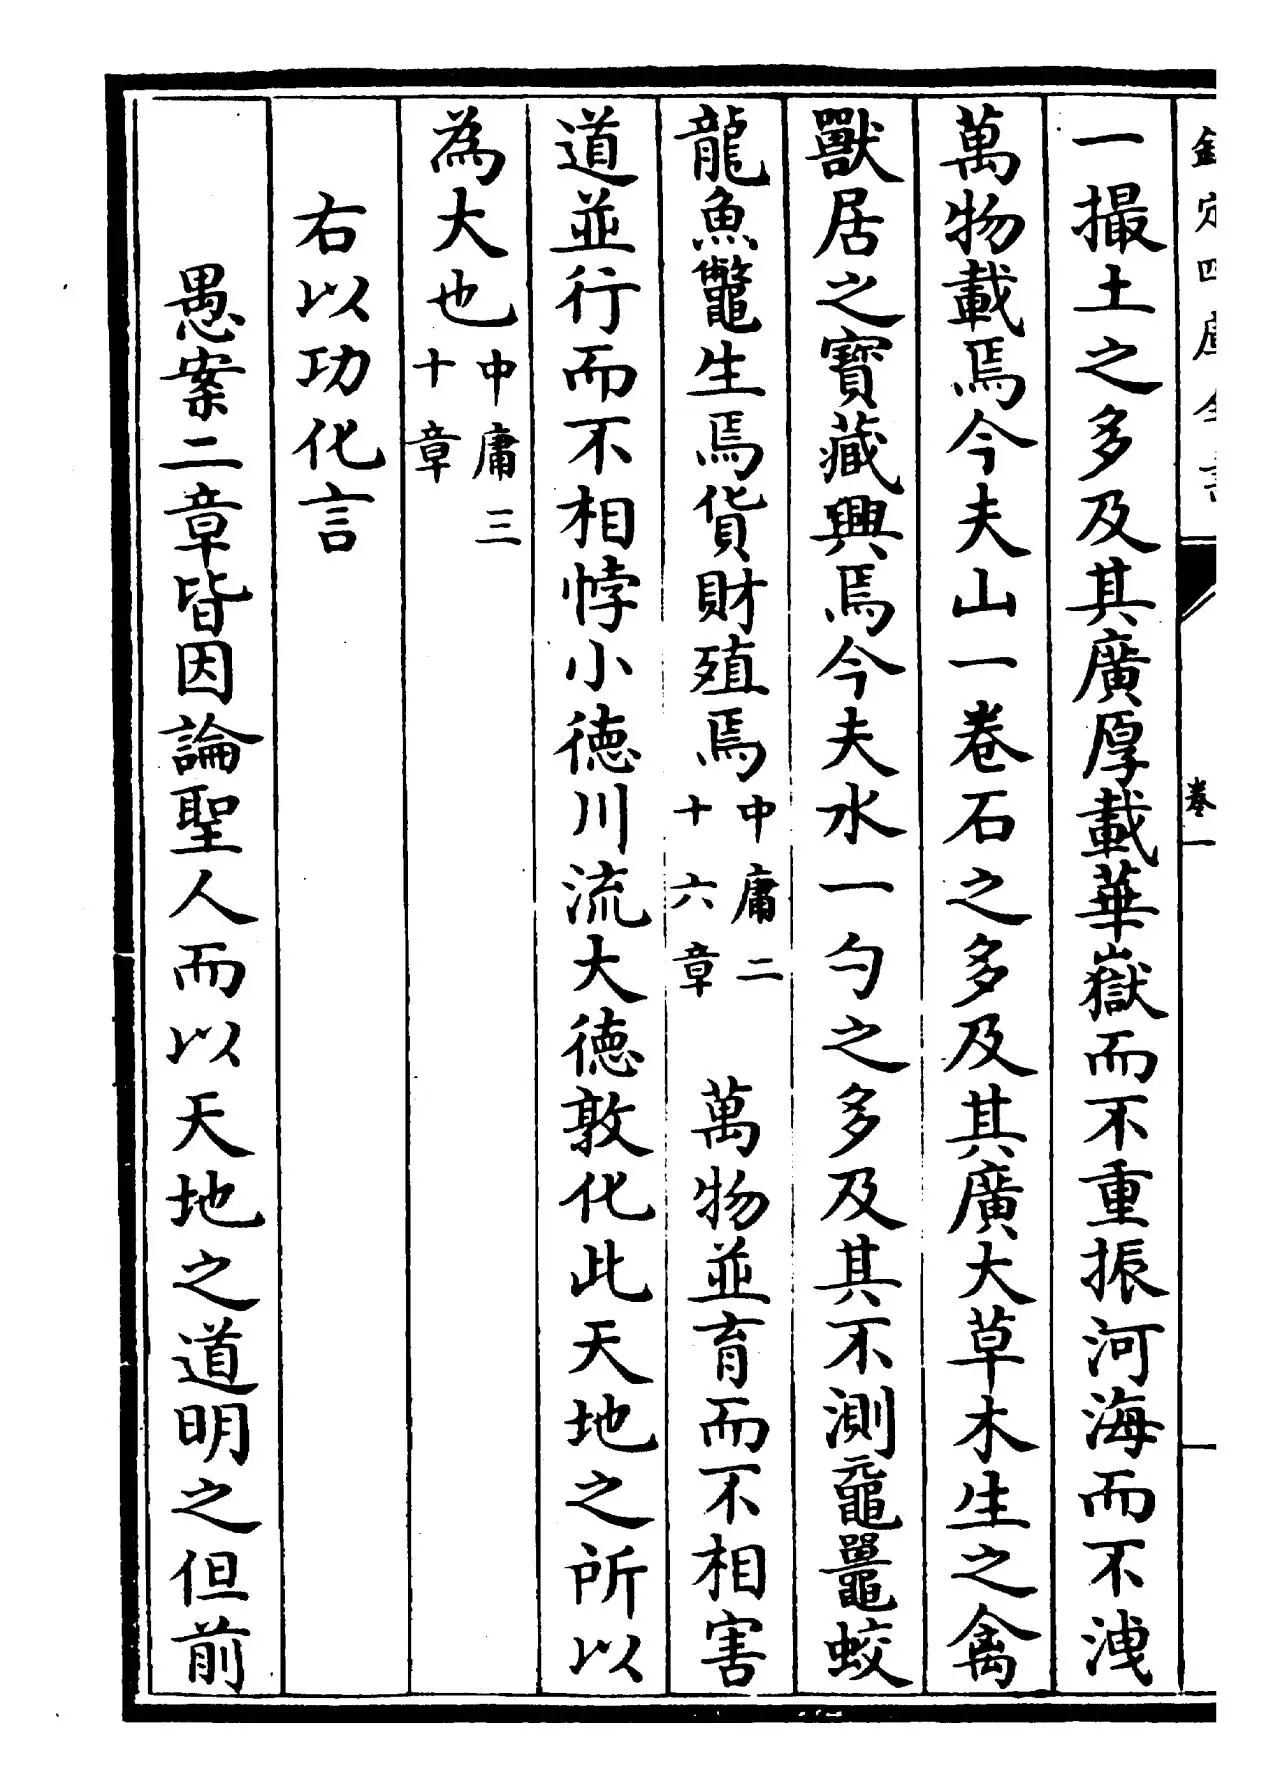 欽定四庫全書
卷一
一撮土之多及其廣厚載華嶽而不重振河海而不洩
萬物載焉今夫山一卷石之多及其廣大草木生之禽
獸居之寶藏興焉今夫水一勺之多及其不測黿鼉蛟
龍魚鼈生焉貨財殖焉中庸二十六章 萬物並育而不相害
道並行而不相悖小徳川流大徳敦化此天地之所以
為大也中庸三十章
右以功化言
愚案二章皆因論聖人而以天地之道明之但前